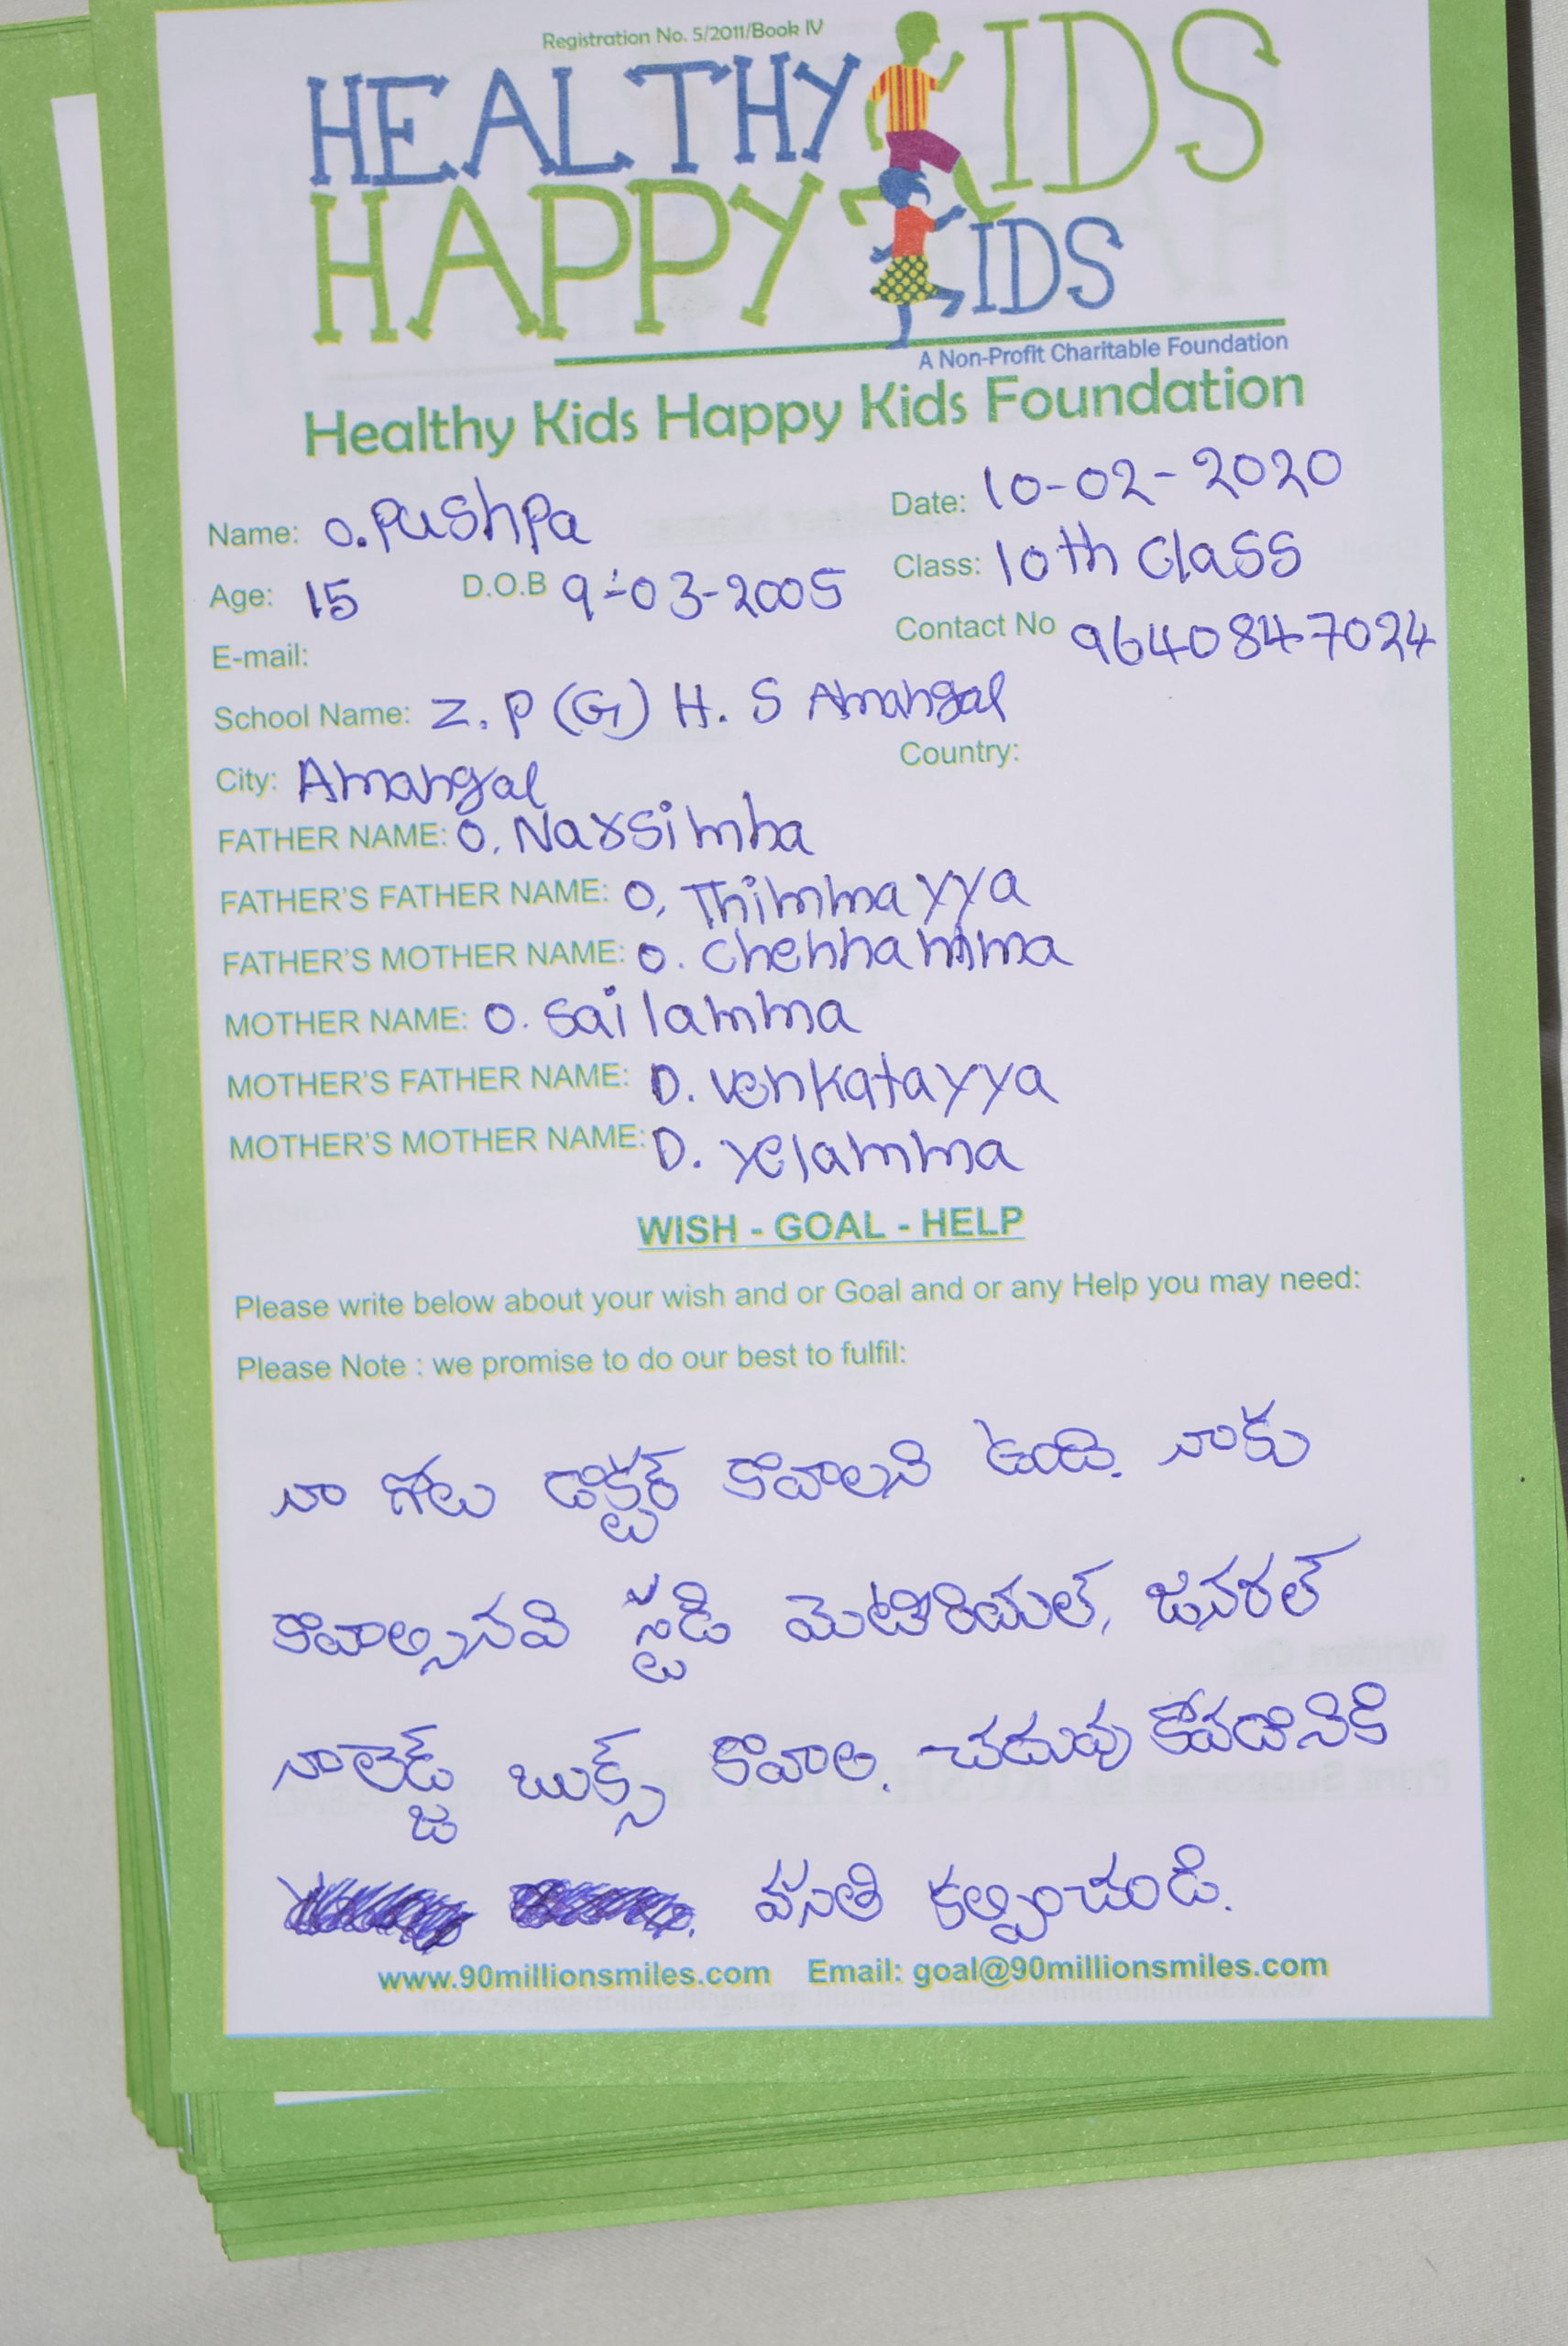 Registration No. 5/2011/Book IV
HEALTHY KIDS
HAPPY KIDS
A Non-Profit Charitable Foundation
Healthy Kids Happy Kids Foundation
Name: O. Pushpa Date: 10-02-2020
Age: 15 D.O.B 9-03-2005 Class: 10th Class
E-mail: Contact No 9640847024
School Name: Z. P (G) H. S Amangal
City: Amangal Country:
FATHER NAME: O. Narsimha
FATHER'S FATHER NAME: O, Thimmayya
FATHER'S MOTHER NAME: O. Chennamma
MOTHER NAME: O. Sailamma
MOTHER'S FATHER NAME: D. Venkatayya
MOTHER'S MOTHER NAME: D. Yelamma
WISH - GOAL - HELP
Please write below about your wish and or Goal and or any Help you may need:
Please Note : we promise to do our best to fulfil:
నా గోలు డాక్టర్ కావాలని ఉంది. నాకు
కావాల్సినవి స్టడి మెటీరియల్, జనరల్
నాలెడ్జ్ బుక్స్ కావాల. చదువు కోవడానికి
వసతి కల్పించండి.
www.90millionsmiles.com Email: goal@90millionsmiles.com